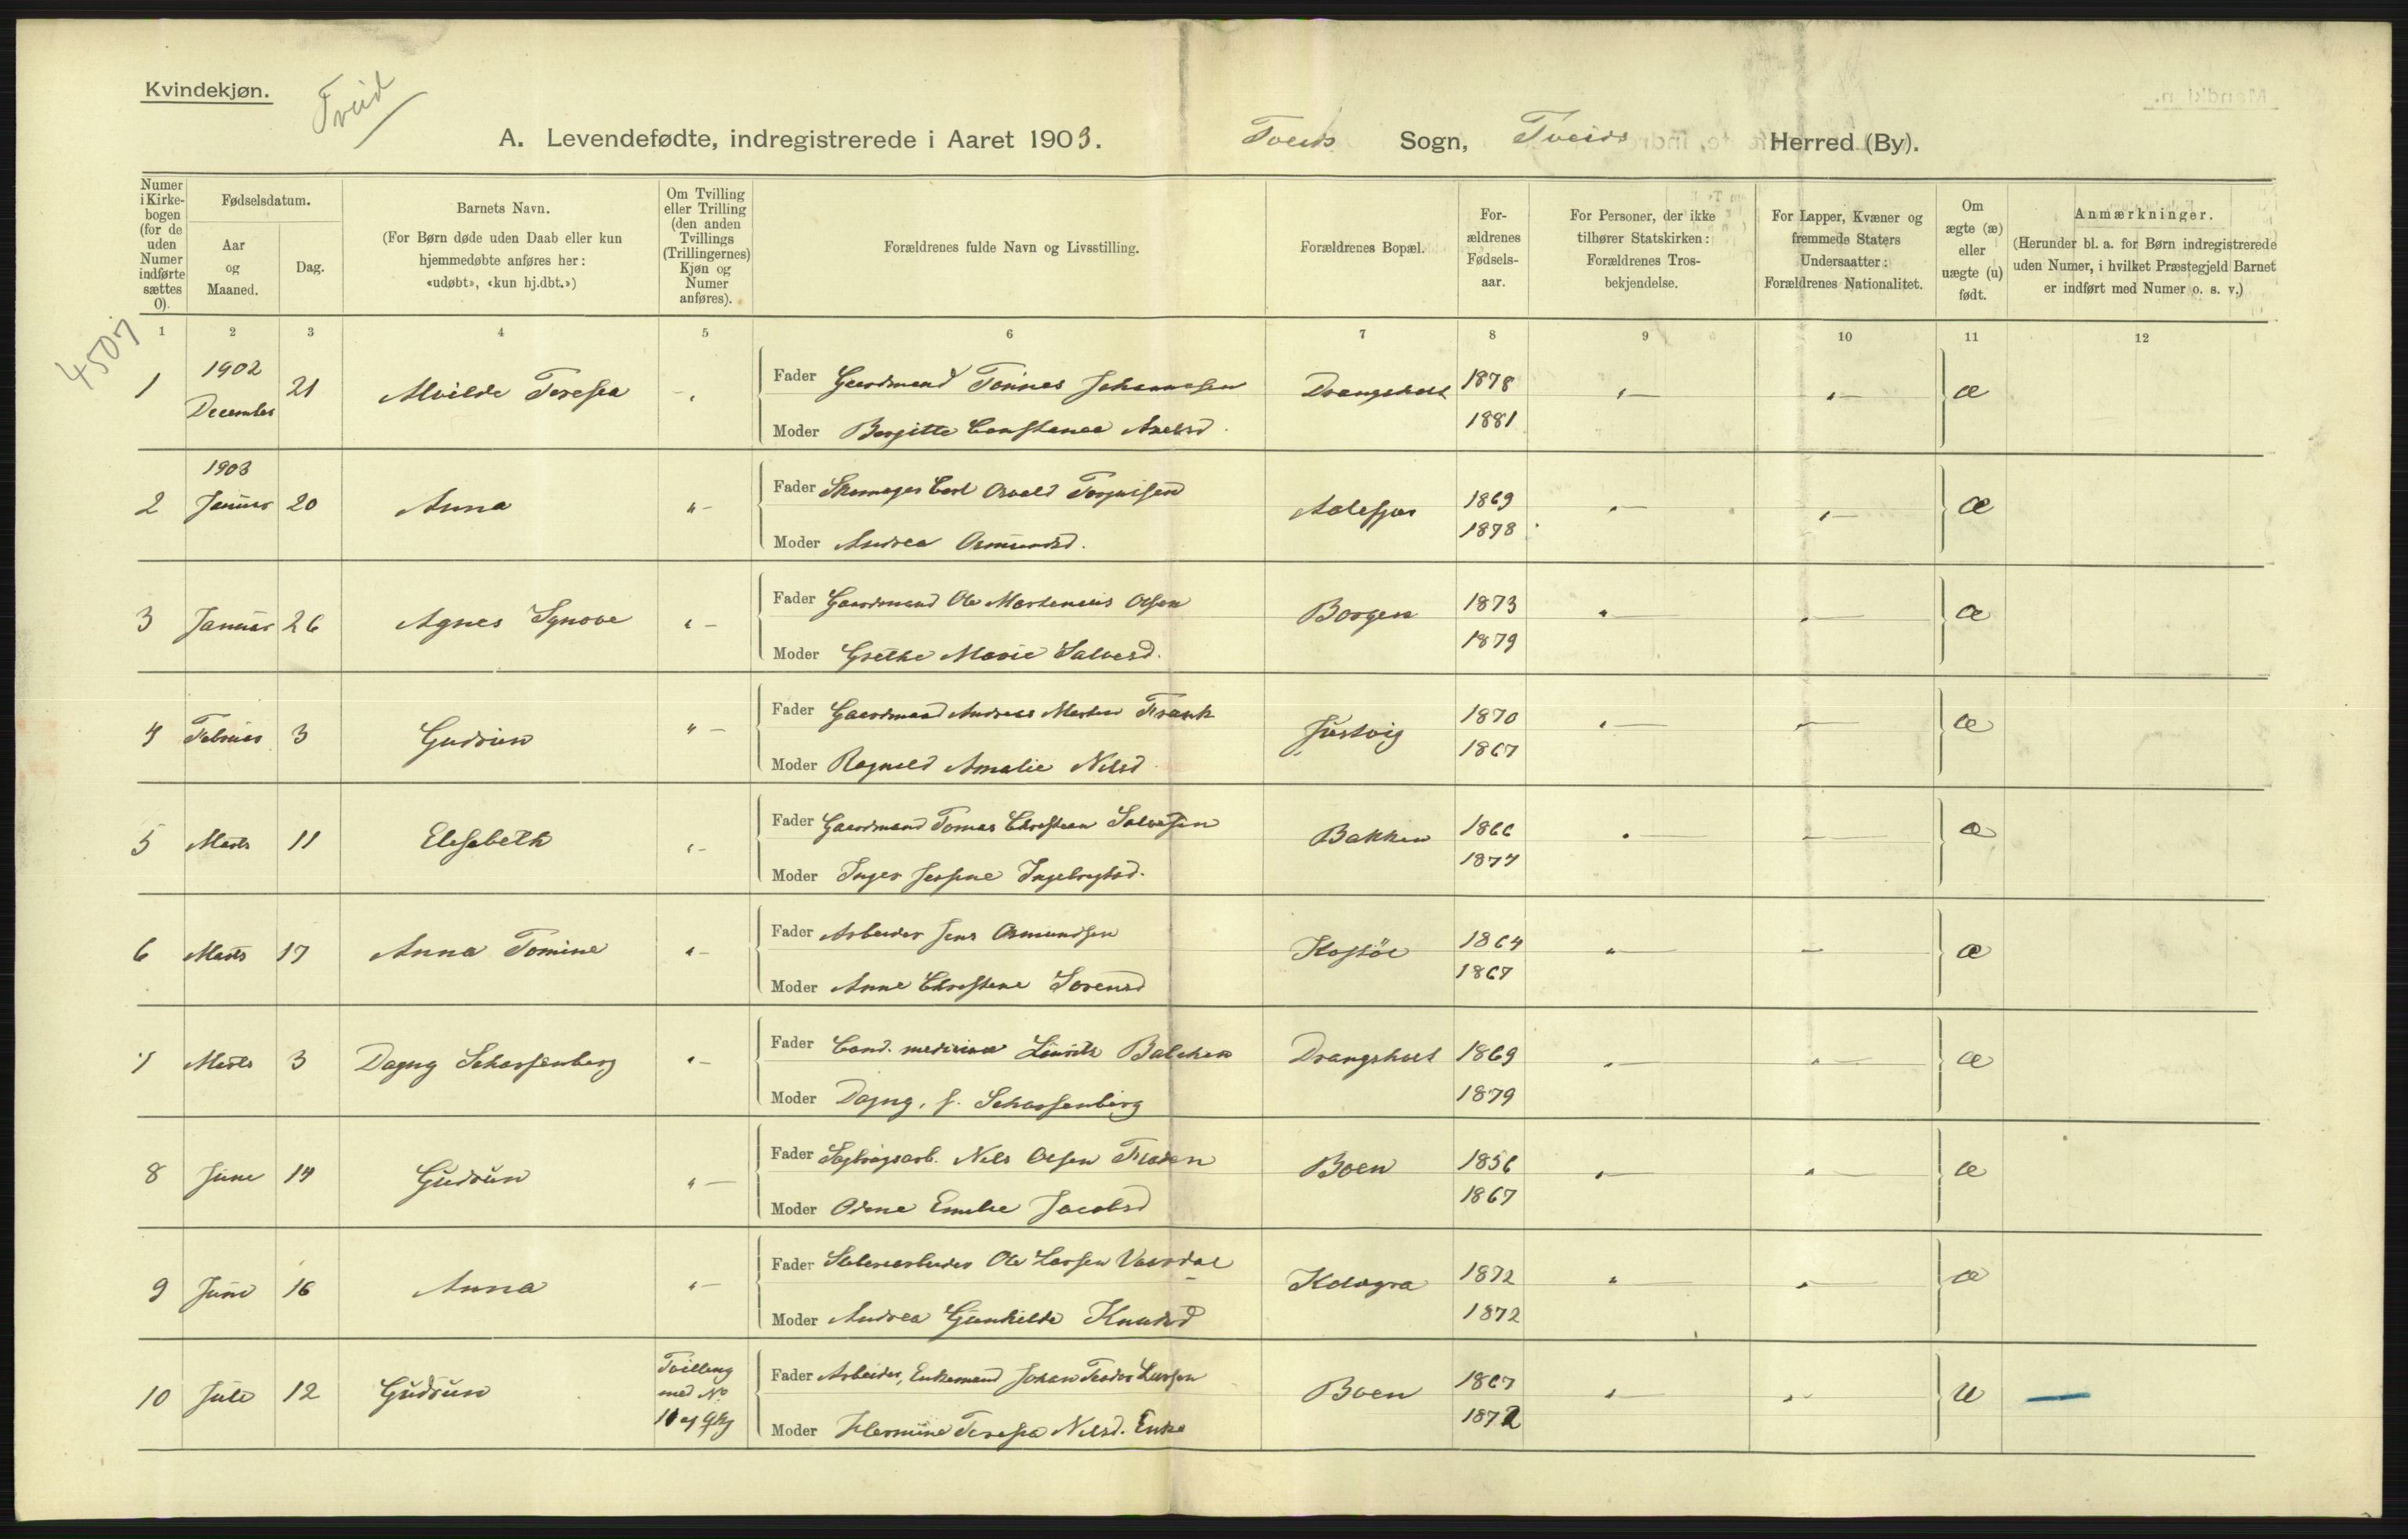 Kvindekjøn.
Tveid
A. Levendefødte, indregistrerede i Aaret 1903. Tveids Sogn, Tveids Herred (By).
Numer i Kirke-bogen (for de uden Numer indførte sættes 0).
Fødselsdatum.
Aar og Maaned.
Dag.
Barnets Navn.
(For Børn døde uden Daab eller kun hjemmedøbte anføres her: «udøbt», «kun hj.dbt.»)
Om Tvilling eller Trilling (den anden Tvillings (Trillingernes) Kjøn og Numer anføres).
Forældrenes fulde Navn og Livsstilling.
Forældrenes Bopæl.
For-ældrenes Fødsels-aar.
For Personer, der ikke tilhører Statskirken: Forældrenes Tros-bekjendelse.
For Lapper, Kvæner og fremmede Staters Undersaatter: Forældrenes Nationalitet.
Om ægte (æ) eller uægte (u) født.
Anmærkninger.
(Herunder bl. a. for Børn indregistrerede uden Numer, i hvilket Præstegjeld Barnet er indført med Numer o. s. v.)
1 2 3 4 5 6 7 8 9 10 11 12
4507
1 1902 December 21 Alvilde Teresea Fader Gaardmand Tønnes Johannesen Drangsholt 1878 æ
Moder Bergitte Constance Axelsd. 1881
2 1903 Januar 20 Anna Fader Skomager Carl Osvald Torjusen Aalefjær 1869 æ
Moder Andrea Osmundsd. 1878
3 Januar 26 Agnes Synove Fader Gaardmand Ole Martenius Olsen Borgen 1873 æ
Moder Grethe Marie Salvesd. 1879
4 Februar 3 Gudrun Fader Gaardmand Andreas Frank Justvig 1870 æ
Moder Ragnild Amalie Nilsd 1867
5 Marts 11 Elesabeth Fader Gaardmand Tomas Christian Salvesen Bakken 1866 æ
Moder Inger Jespine Ingebregtsd. 1874
6 Marts 17 Anna Tomine Fader Arbeider Jens Osmundsen Kostöl 1864 æ
Moder Anne Christene Sørensd 1867
7 Marts 3 Dagny Scharfenberg Fader Cand. medicina Laurits Balchen Drangsholt 1869 æ
Moder Dagny, f. Scharfenberg 1879
8 June 14 Gudrun Fader Sagbrugsarb. Nils Olsen Boen 1856 æ
Moder Odene Emelie Jacobsd 1867
9 Juni 16 Anna Fader Ole Larsen Vaardal 1872 æ
Moder Andrea Gunhilde Knudsd 1872
10 Jule 12 Gudrun Tvilling med No 11 af Qkj Fader Arbeider, Enkemand Johan Teodor Larsen Boen 1867 u
Moder Hermine Teresea Nilsd. Enke 1872